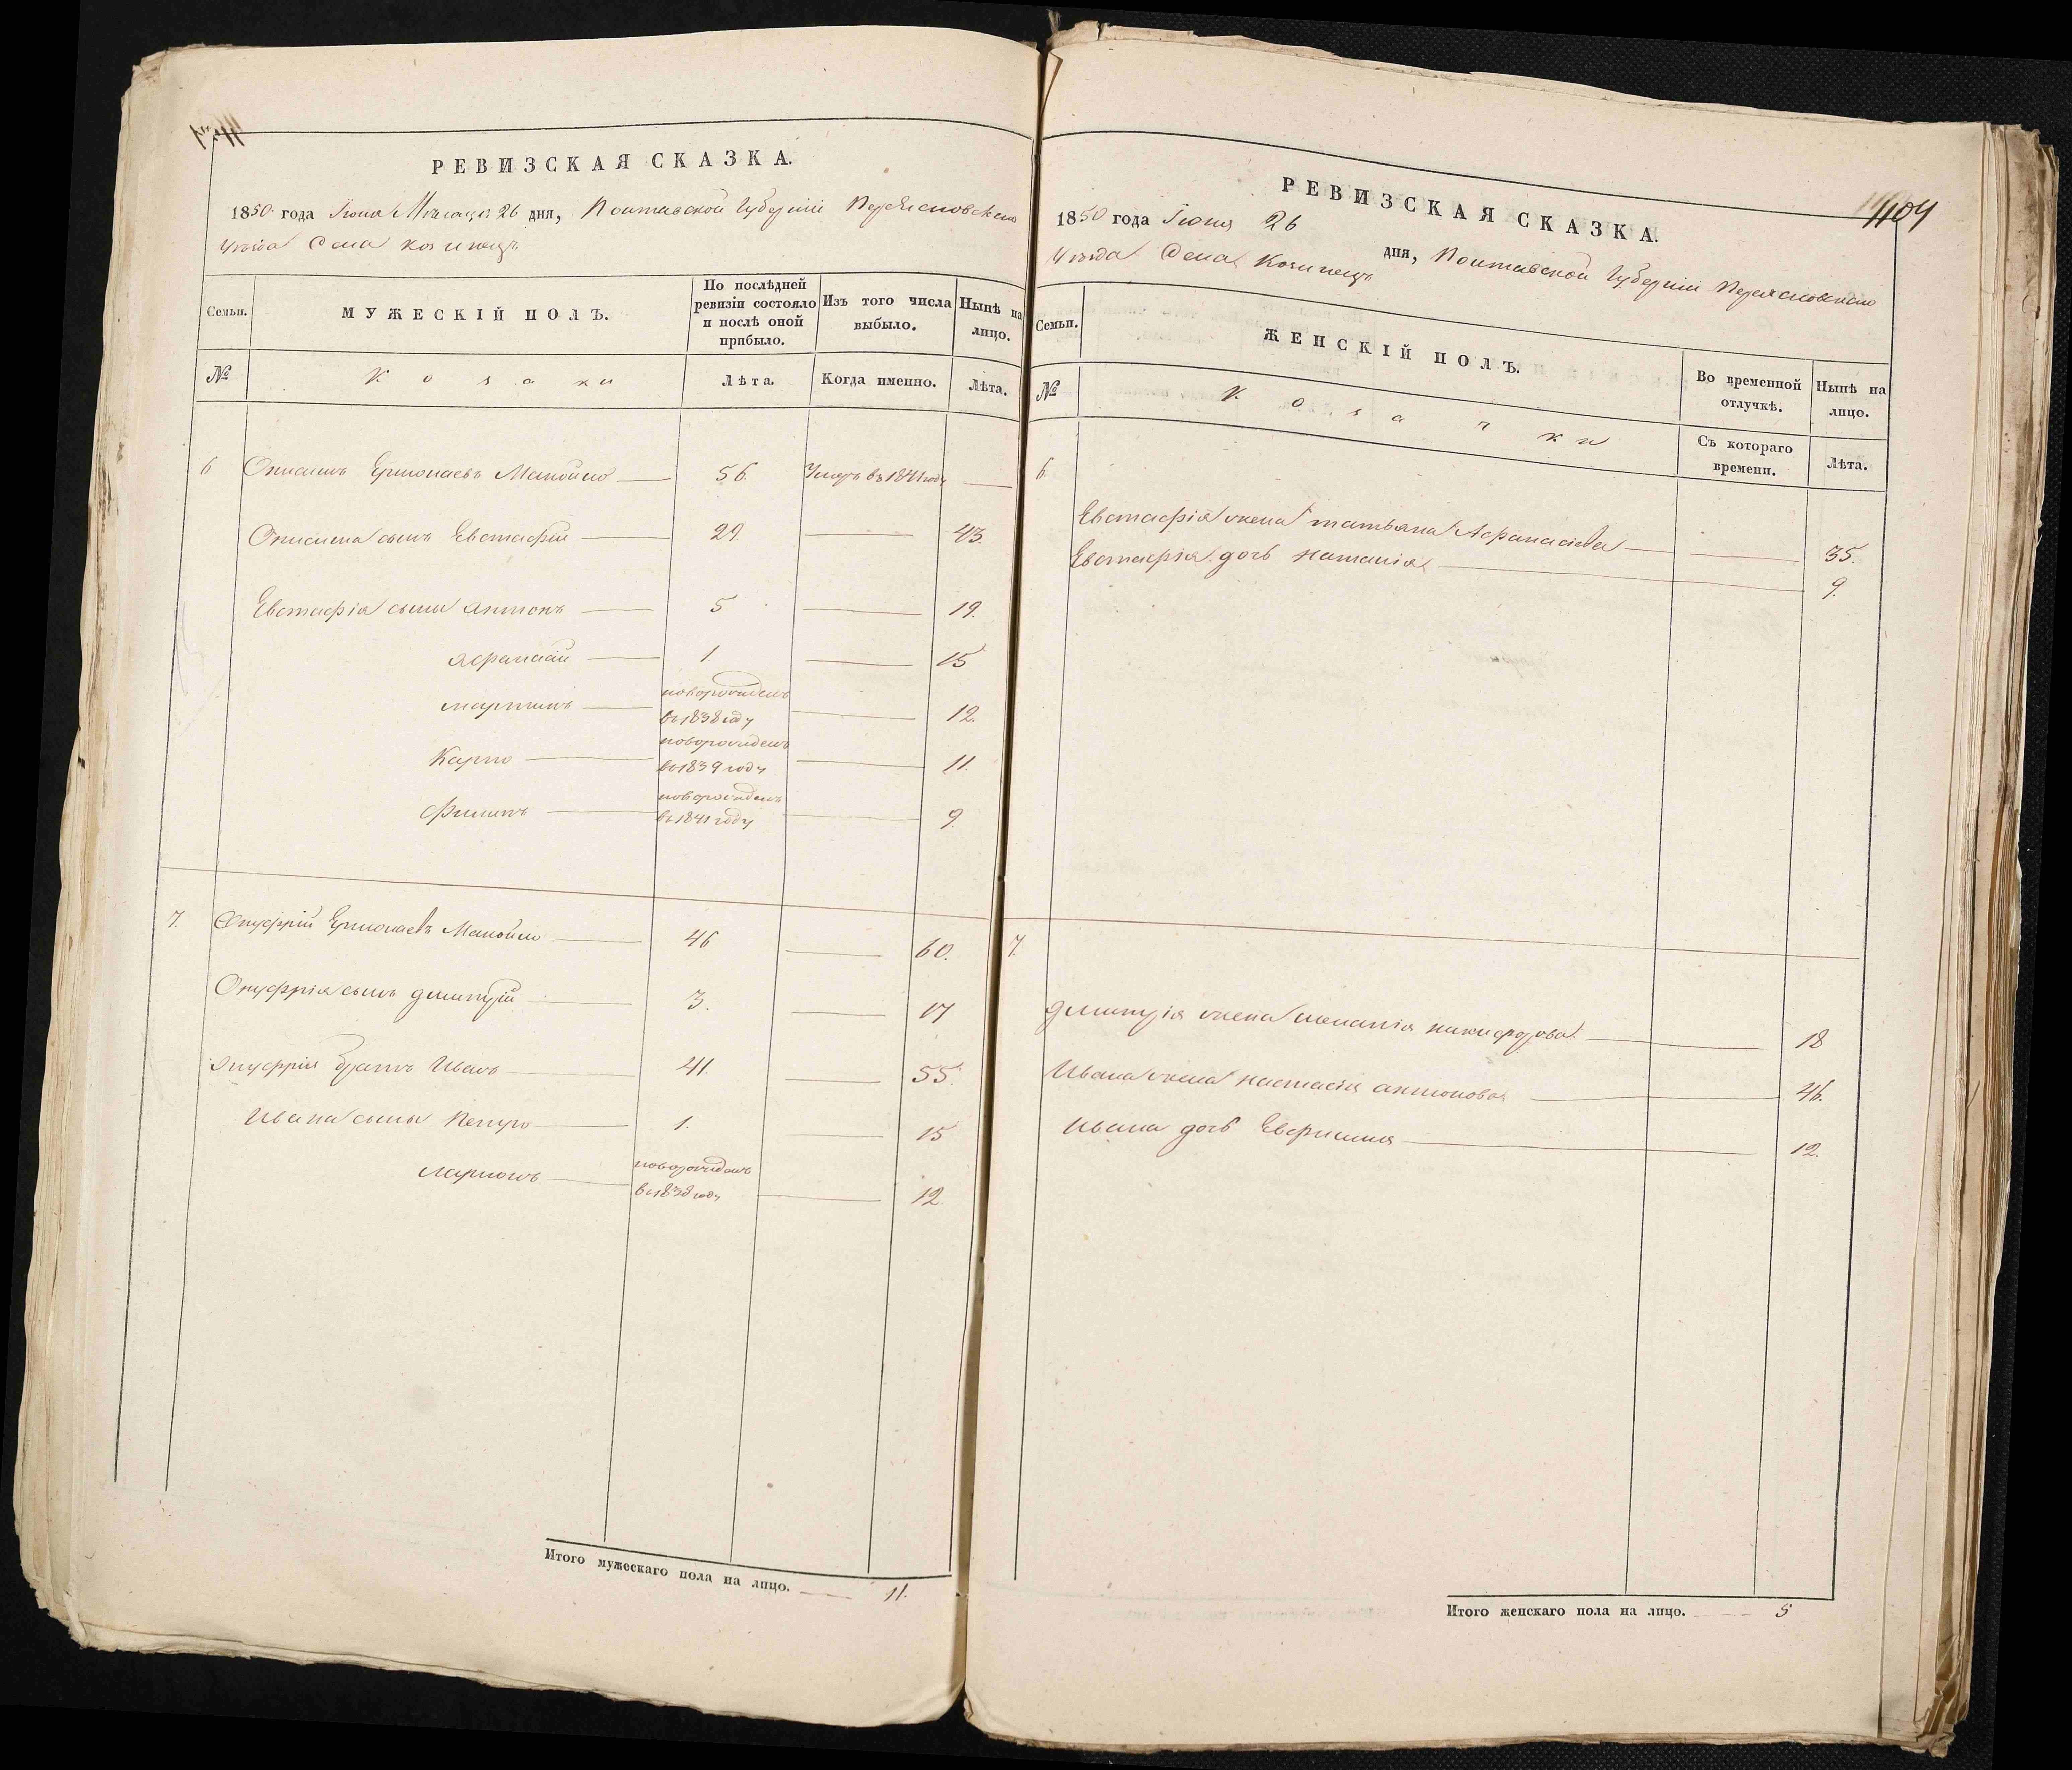 РЕВИЗСКАЯ СКАЗКА.
1850 года Іюня Месяца 26 дня, Полтавской Губерніи Переясловского
Уезда Села Козинецъ
Семьи.
МУЖЕСКІЙ ПОЛЪ.
По послѣдней ревизіи состояло и послѣ оной прибыло.
Изъ того числа выбыло.
Нынѣ на лицо.
№
Козаки
Лѣта.
Когда именно.
Лѣта.
6 Ермолаевъ Манойло 56. Умеръ въ 1841 году
сынъ Евстафій 29. 43.
Евстафія сыны Антонъ 5 19.
Афанасій 1. 15
Мартинъ новорожденъ въ 1838 году 12.
Карпо новорожденъ въ 1839 году 11.
Филипъ новорожденъ въ 1841 году 9.
7. Онуфрій Ермолаевъ Манойло 46 60.
Онуфрія сынъ Димитрій 3. 17
Онуфрія братъ Иванъ 41. 55.
Ивана сыны Петро 1. 15
Ларионъ новорожденъ въ 1838 году 12.
Итого мужескаго пола на лицо. 11.
1104
РЕВИЗСКАЯ СКАЗКА.
1850 года Іюня 26 дня, Полтавской Губерніи Переясловского
Уезда Села Козинецъ
Семьи.
ЖЕНСКІЙ ПОЛЪ.
Во временной отлучкѣ.
Нынѣ на лицо.
№
Козачки
Съ котораго времени.
Лѣта.
6.
Евстафія жена Татьяна Афанасіева 35.
Евстафія дочь Наталія 9.
7.
Димитрія жена Меланія Никифорова 18
Ивана жена Настасія Антонова 46.
Ивана дочь Евфимия 12.
Итого женскаго пола на лицо. 5